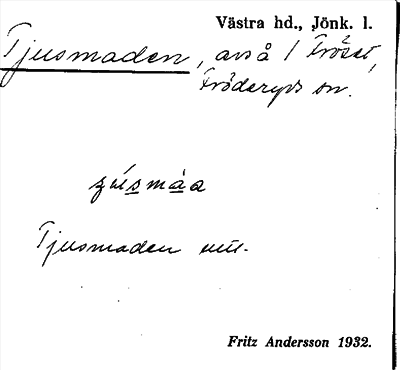 Västra hd., Jönk. l.
Tjusmaden, avså / Fröset,
Fröderyds sn.
Tjusmaden
Fritz Andersson 1932.